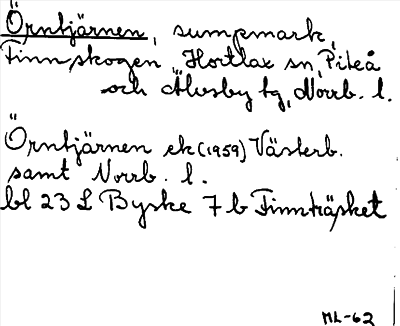 Örntjärnen, sumpmark,
Finnskogen, Hortlax sn, Piteå
och Älvsby tg, Norrb. l.
Örntjärnen ek (1959) Västerb.
samt Norrb. l.
bl 23 L Byske 7 b Finnträsket
ML-62